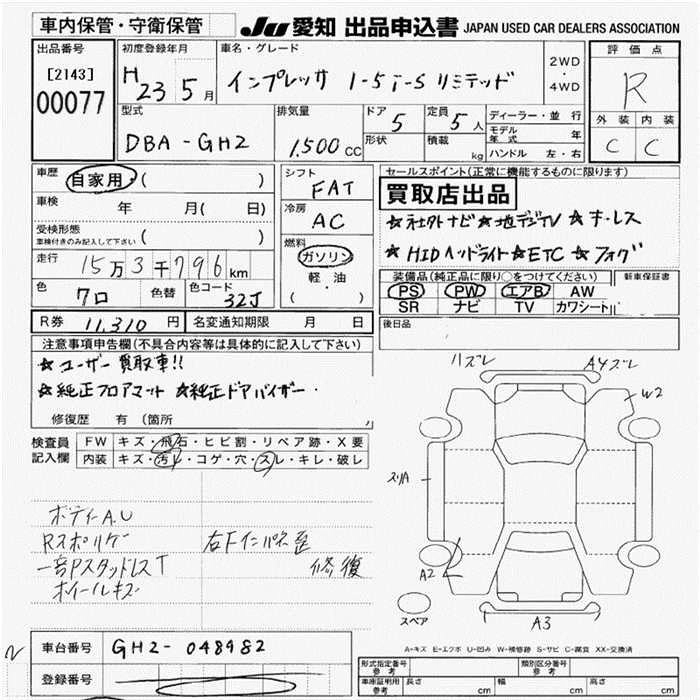 車内保管・守衛保管 JU 愛知 出品申込書 JAPAN USED CAR DEALERS ASSOCIATION
出品番号 初度登録年月 車名・グレード 2WD・4WD 評価点
[2143] H 23 5月 インプレッサ 1-5i-S リミテッド R
00077
外装 内装
型式 排気量 ドア 定員 ディーラー・並行
DBA-GH2 1,500CC 5 5人 モデル年式 年 C C
形状 積載 kg ハンドル 左・右
車歴 自家用・( ) シフト FAT セールスポイント(正常に機能するものに限ります)
車検 年 月( 日) 冷房 AC 買取店出品
受検形態 車検付きのみ記入して下さい ( ) ★社外ナビ★地デジTV★キーレス
走行 15万3千796km 燃料 ガソリン・軽油 ( ・ ) ★HIDヘッドライト★ETC★フォグ
色 クロ 色替 色コード 32J 装備品(純正品に限り○をつけてください) 新車保証書
PS PW エアB AW
SR ナビ TV カワシート
R券 11,310円 名変通知期限 月 日 後日品
注意事項申告欄(不具合内容等は具体的に記入して下さい)
★ユーザー買取車!!
★純正フロアマット ★純正ドアバイザー・
修復歴 有 (箇所
検査員記入欄 FW キズ・飛石・ヒビ割・リペア跡・X要
内装 キズ・汚レ・コゲ・穴・スレ・キレ・破レ
ハズレ A4ズレ
W2
スリA
ボディA.U
Rスポリゲ 右Fインパネ歪
修復
一部Pスタッドレス T
ホイールキズ
A2
スペア A3
A-キズ E-エクボ U-凹み W-補修跡 S-サビ C-腐食 XX-交換済
車台番号 GH2-048982
登録番号
形式指定番号 参考 類別区分番号 参考
車庫証明用 参考 長さ cm 幅 cm 高さ cm